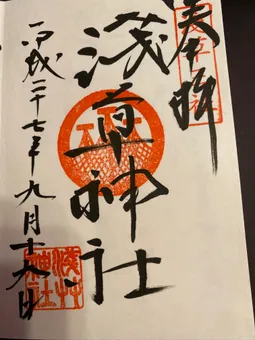 奉拝
淺草神社
平成二十七年九月十六日
浅草神社